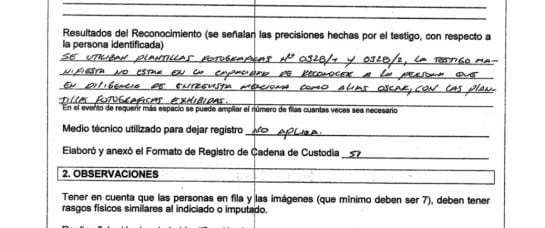 Resultados del Reconocimiento (se señalan las precisiones hechas por el testigo, con respecto a
la persona identificada)
SE UTILIZAN PLANTILLAS FOTOGRAFICAS Nº 0328/1 Y 0328/2, LA TESTIGO MA-
NIFIESTA NO ESTAR EN LA CAPACIDAD DE RECONOCER A LA PERSONA QUE
EN DILIGENCIA DE ENTREVISTA MENCIONA COMO ALIAS OSCAR, CON LAS PLAN-
TILLAS FOTOGRAFICAS EXHIBIDAS.
En el evento de requerir más espacio se puede ampliar el número de filas cuantas veces sea necesario
Medio técnico utilizado para dejar registro NO APLICA.
Elaboró y anexó el Formato de Registro de Cadena de Custodia SI
2. OBSERVACIONES
Tener en cuenta que las personas en fila y las imágenes (que mínimo deben ser 7), deben tener
rasgos físicos similares al indiciado o imputado.